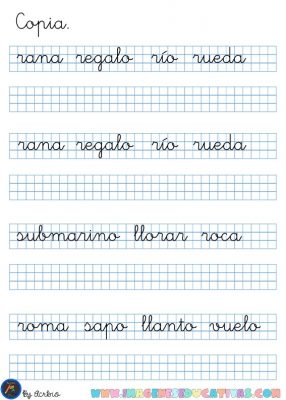 Copia.
rana regalo río rueda
rana regalo río rueda
submarino llorar roca
roma sapo llanto vuelo
by dcrbno
www.imageneseducativas.com